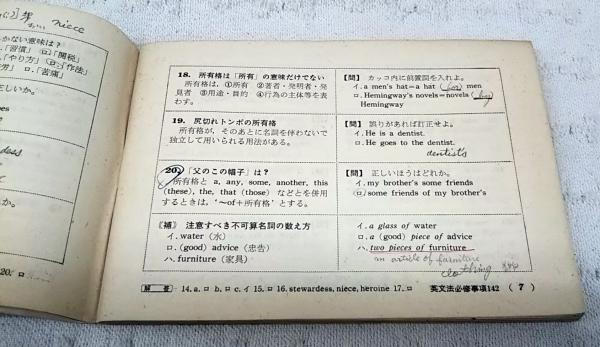 niece
かない意味は？
18. 所有格は「所有」の意味だけでない
所有格は、①所有 ②著者・発明者・発
見者 ③用途・目的 ④行為の主体等を表
わす。
【問】 カッコ内に前置詞を入れよ。
イ. a men's hat=a hat (for) men
ロ. Hemingway's novels=novels (by)
Hemingway
19. 尻切れトンボの所有格
所有格が、そのあとに名詞を伴わないで
独立して用いられる用法がある。
【問】 誤りがあれば訂正せよ。
イ. He is a dentist.
ロ. He goes to the dentist.
dentist's
20. 「父のこの帽子」は？
所有格と a, any, some, another, this
(these), the, that (those) などとを併用
するときは、'~of+所有格'とする。
【問】 正しいほうはどれか。
イ. my brother's some friends
ロ. some friends of my brother's
〖補〗 注意すべき不可算名詞の数え方
イ. water (水)
ロ. (good) advice (忠告)
ハ. furniture (家具)
イ. a glass of water
ロ. a (good) piece of advice
ハ. two pieces of furniture
an article of furniture
clothing
解答 14. a. ロ b. ロ c. イ 15. ロ 16. stewardess, niece, heroine 17. ロ
英文法必修事項142 ( 7 )